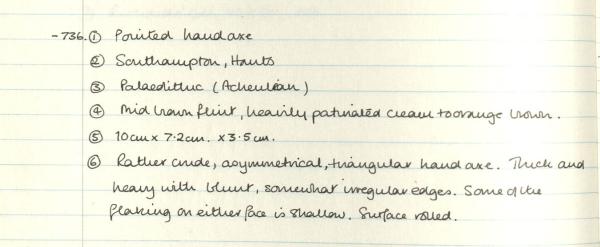 -736. ① Pointed hand axe
② Southampton, Hants
③ Palaeolithic (Acheulian)
④ Mid brown flint, heavily patinated cream to orange brown.
⑤ 10cm x 7.2cm. x 3.5cm.
⑥ Rather crude, asymmetrical, triangular hand axe. Thick and
heavy with blunt, somewhat irregular edges. Some of the
flaking on either face is shallow. Surface rolled.